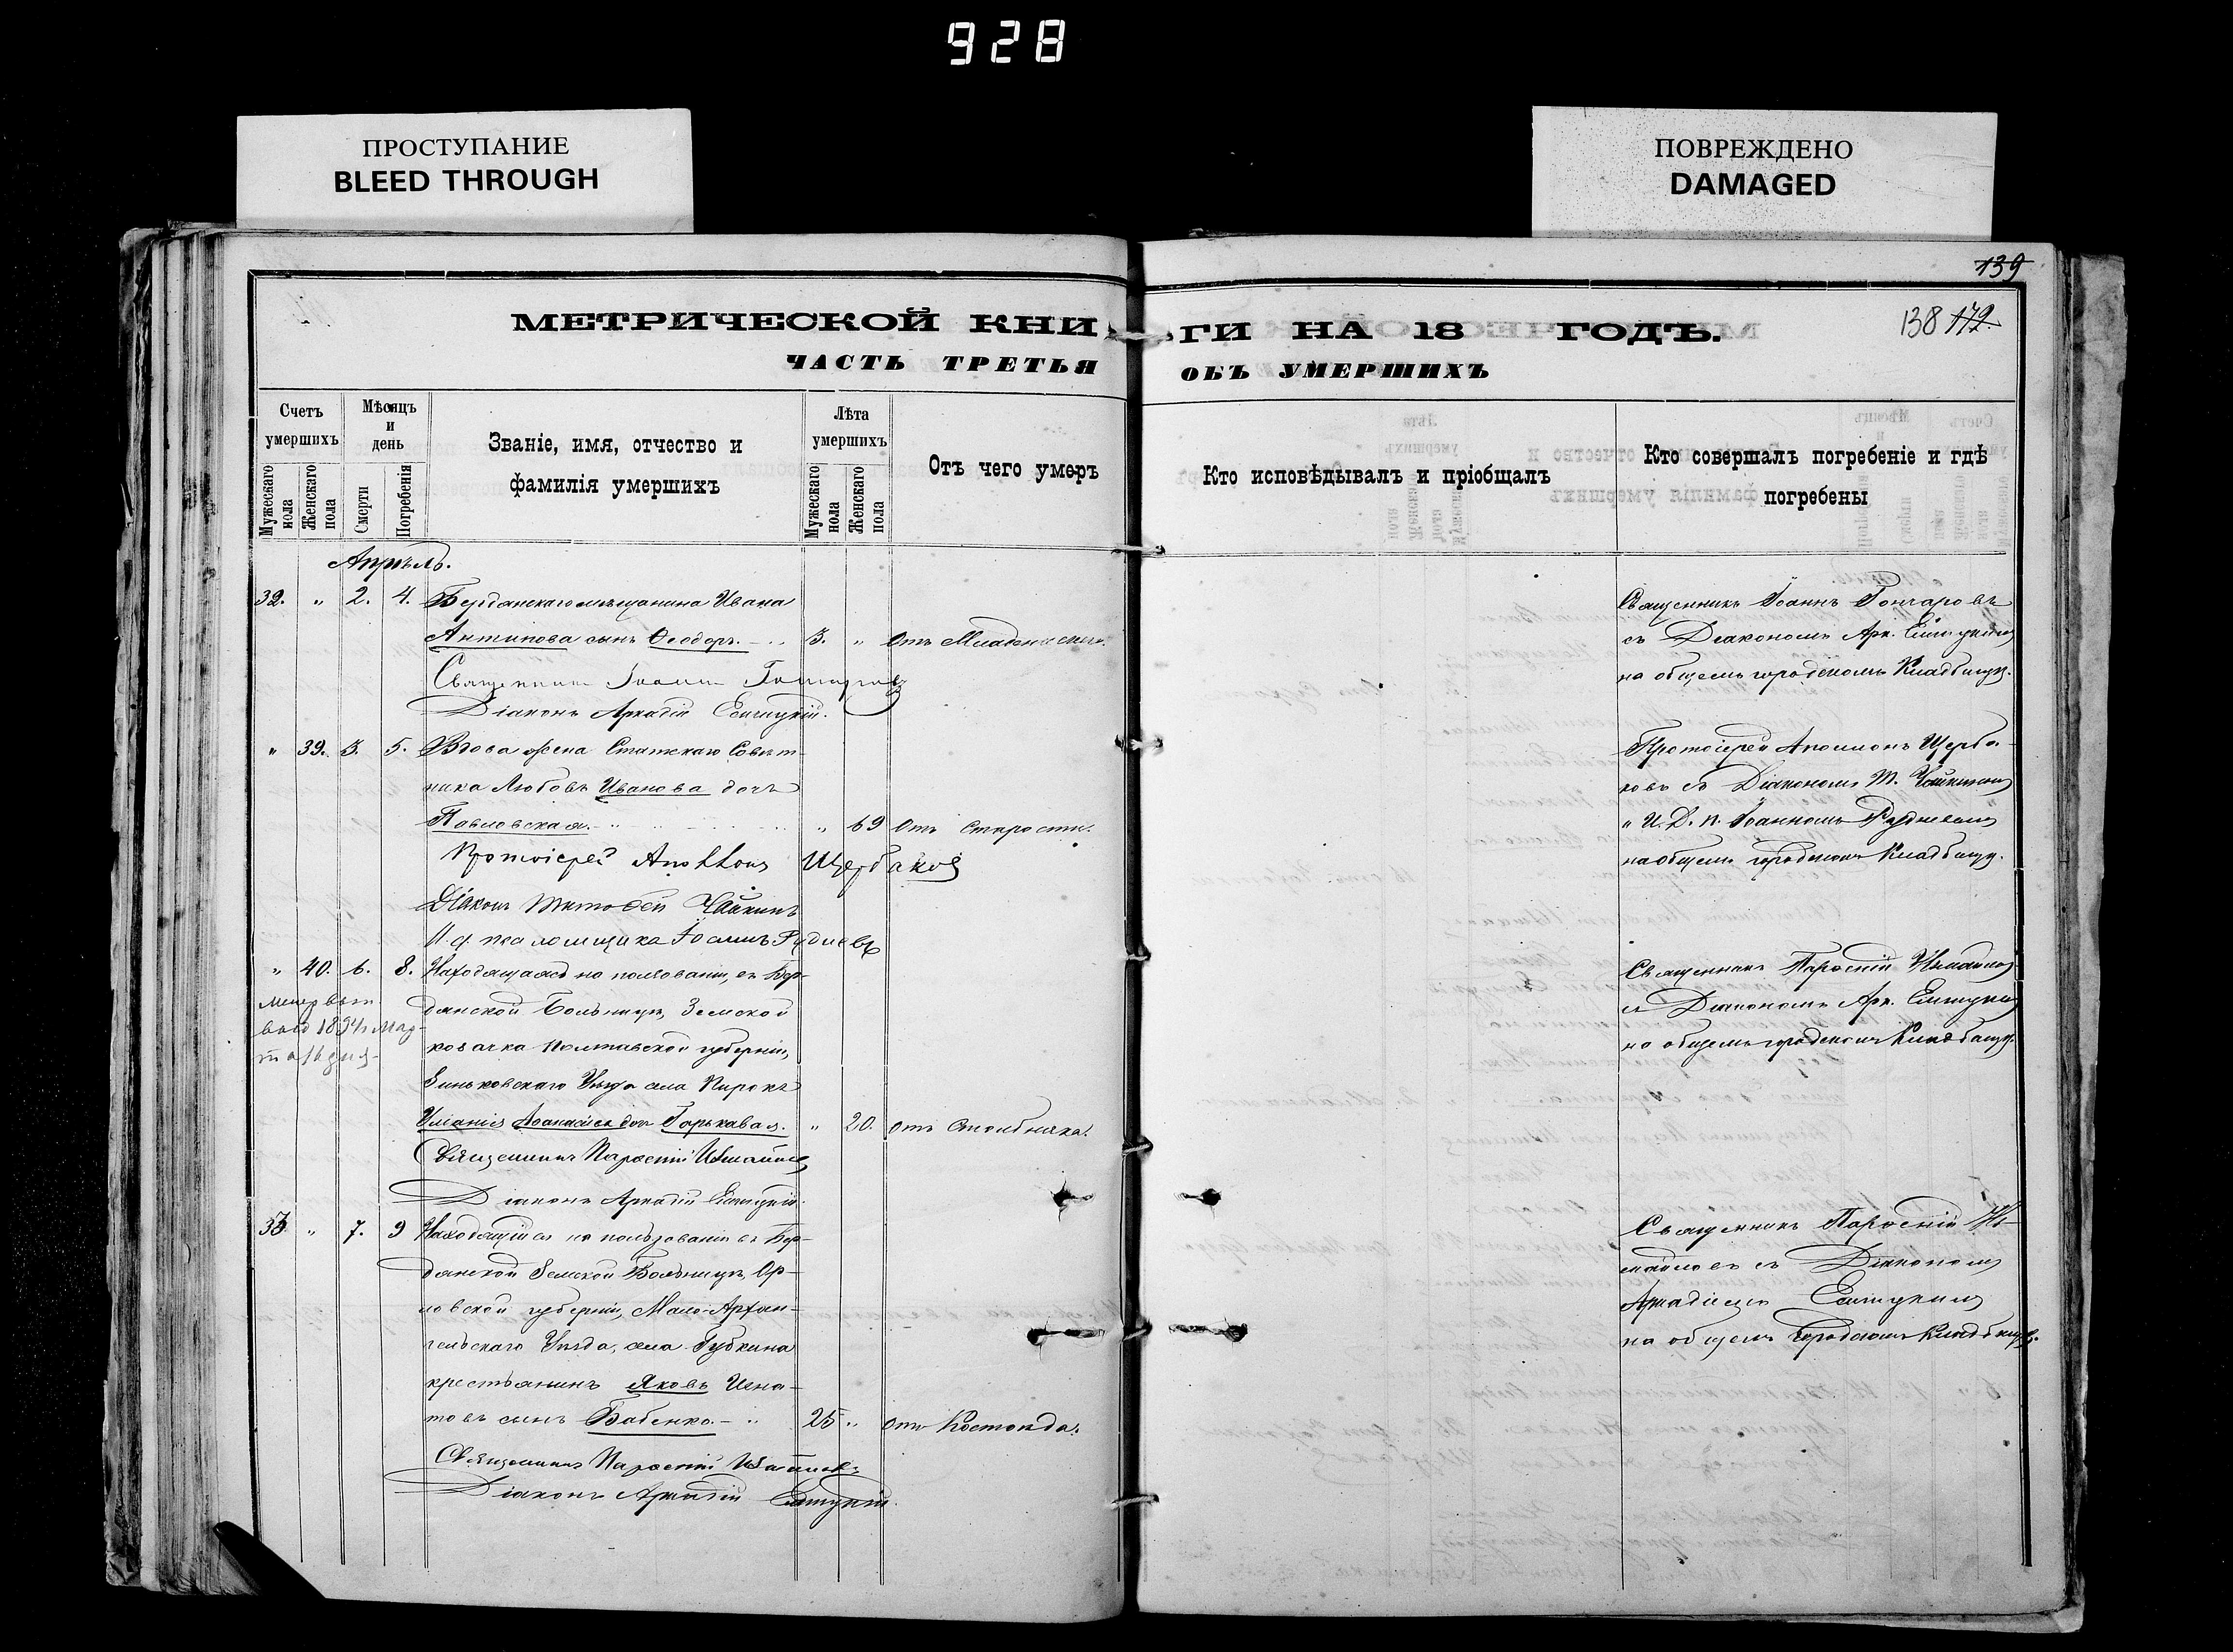 928
ПРОСТУПАНИЕ
BLEED THROUGH
ПОВРЕЖДЕНО
DAMAGED
139
138 172.
МЕТРИЧЕСКОЙ КНИГИ НА 18 ГОДЪ.
ЧАСТЬ ТРЕТЬЯ ОБЪ УМЕРШИХЪ
Счетъ умершихъ
Мужескаго пола
Женскаго пола
Мѣсяцъ и день
Смерти
Погребенія
Званіе, имя, отчество и
фамилія умершихъ
Лѣта умершихъ
Мужескаго пола
Женскаго пола
Отъ чего умеръ
Кто исповѣдывалъ и пріобщалъ
Кто совершалъ погребеніе и гдѣ
погребены
Апрѣль.
32. " 2. 4. Бердянскаго мѣщанина Ивана
Антипова сынъ Ѳеодоръ. 3. " Отъ Младенческ.
Священникъ Іоаннъ Гончаровъ
Діаконъ Аркадій
Священникъ Іоаннъ Гончаровъ
съ Діакономъ Арк.
на общемъ городскомъ Кладбищѣ.
" 39. 3. 5. Вдова жена Статскаго Совѣт-
ника Любовь Иванова дочь
Павловская. " 69 Отъ Старости.
Протоіерей Аполлонъ Щербаковъ
Діаконъ Тимофей Чайкинъ
И. д. псаломщика Іоаннъ Рудневъ
Протоіерей Аполлонъ Щерба-
ковъ съ Діакономъ Т. Чайкинымъ
и И. Д. п. Іоанномъ Рудневымъ
на общемъ городскомъ Кладбищѣ.
" 40. 6. 8. Находящаяся на пользованіи, въ Бер-
дянской Больницѣ, Земской
Полтавской губерніи,
Зиньковскаго Уѣзда села
Аѳанасіева дочь Горькавая. " 20. Отъ Столбняка.
Священникъ
Діаконъ Аркадій
1894 г. Мар-
та 16 дня
Священникъ
съ Діакономъ Арк.
на общемъ городскомъ Кладбищѣ.
33 " 7. 9 Находящійся на пользованіи въ Бер-
дянской Земской Больницѣ, Ор-
ловской губерніи, Мало-Архан-
гельскаго Уѣзда, села Губкина
крестьянинъ Яковъ Игна-
товъ сынъ Бабенко. 25 " Отъ Костоѣда.
Священникъ
Діаконъ Аркадій
Священникъ
съ Діакономъ
Аркадіемъ
на общемъ Городскомъ Кладбищѣ.